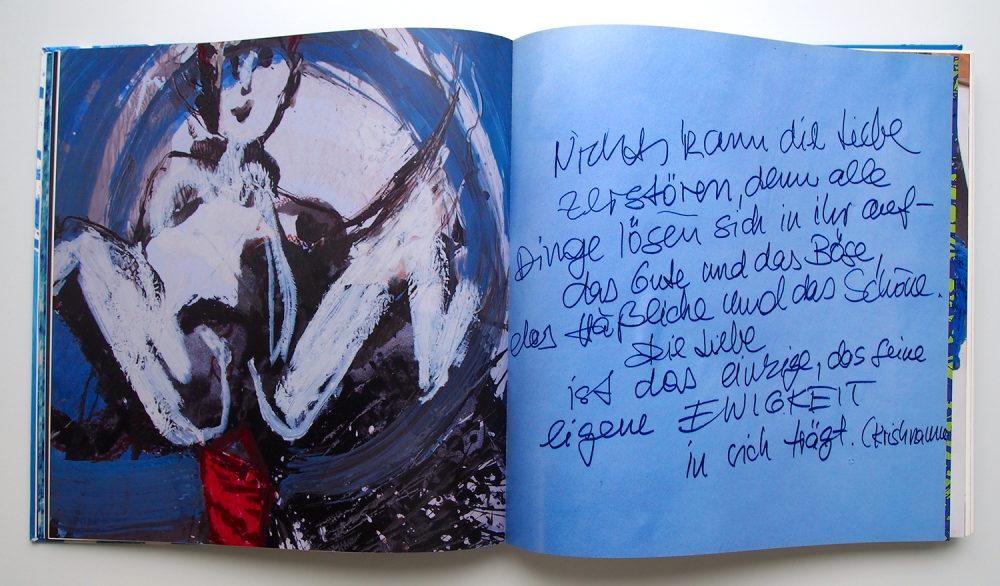 Nichts kann die Liebe
zerstören, denn alle
Dinge lösen sich in ihr auf –
das Gute und das Böse,
das Häßliche und das Schöne.
Die Liebe
ist das einzige, das seine
eigene EWIGKEIT
in sich trägt. (Krishnamu